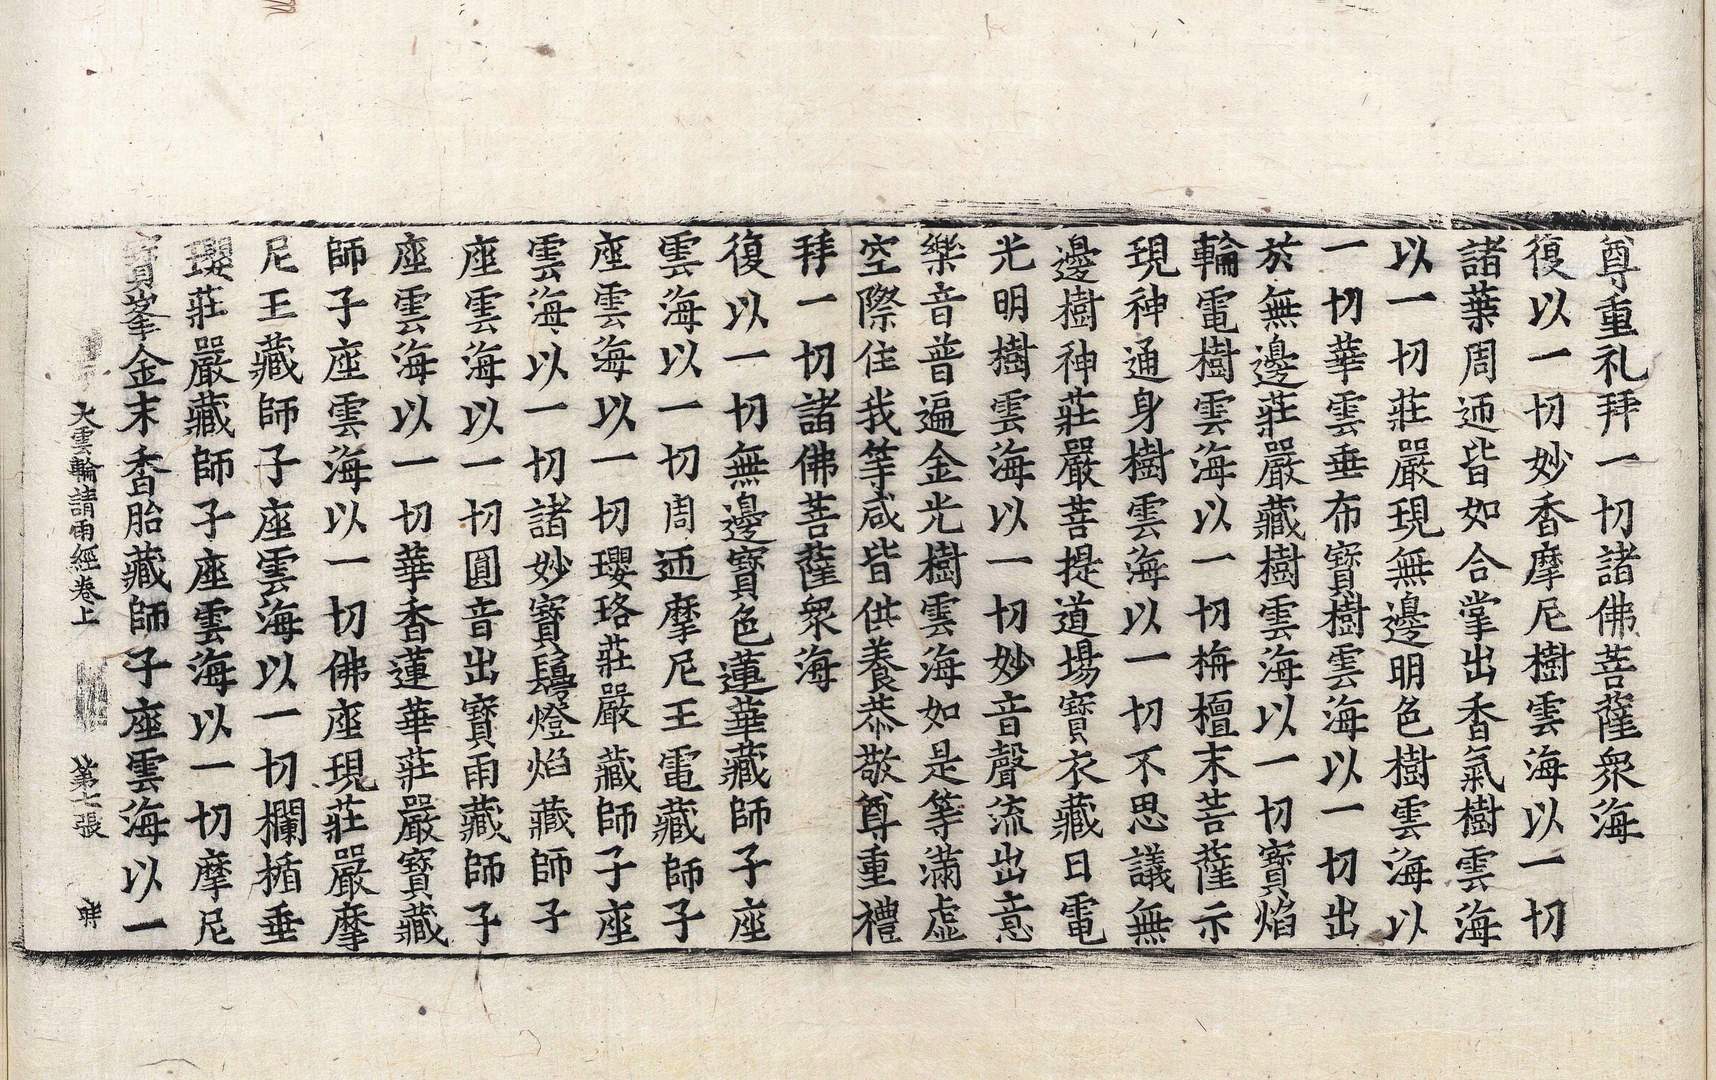 尊重礼拜一切諸佛菩薩衆海
復以一切妙香摩尼樹雲海以一切
諸葉周迊皆如合掌出香氣樹雲海
以一切莊嚴現無邊明色樹雲海以
一切華雲垂布寶樹雲海以一切出
於無邊莊嚴藏樹雲海以一切寶焰
輪電樹雲海以一切栴檀末菩薩示
現神通身樹雲海以一切不思議無
邊樹神莊嚴菩提道場寶衣藏日電
光明樹雲海以一切妙音聲流出意
樂音普遍金光樹雲海如是等滿虛
空際住我等咸皆供養恭敬尊重禮
拜一切諸佛菩薩衆海
復以一切無邊寶色蓮華藏師子座
雲海以一切周迊摩尼王電藏師子
座雲海以一切瓔珞莊嚴藏師子座
雲海以一切諸妙寶鬘燈焰藏師子
座雲海以一切圓音出寶雨藏師子
座雲海以一切華香蓮華莊嚴寶藏
師子座雲海以一切佛座現莊嚴摩
尼王藏師子座雲海以一切欄楯垂
瓔莊嚴藏師子座雲海以一切摩尼
寶峯金末香胎藏師子座雲海以一
大雲輪請雨經卷上 第七張